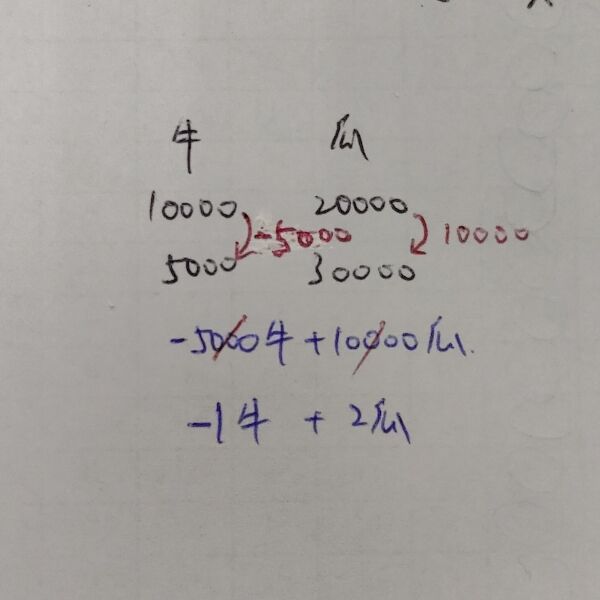 牛 瓜
10000 20000
-5000 10000
5000 30000
-5000牛+10000瓜.
-1牛 + 2瓜